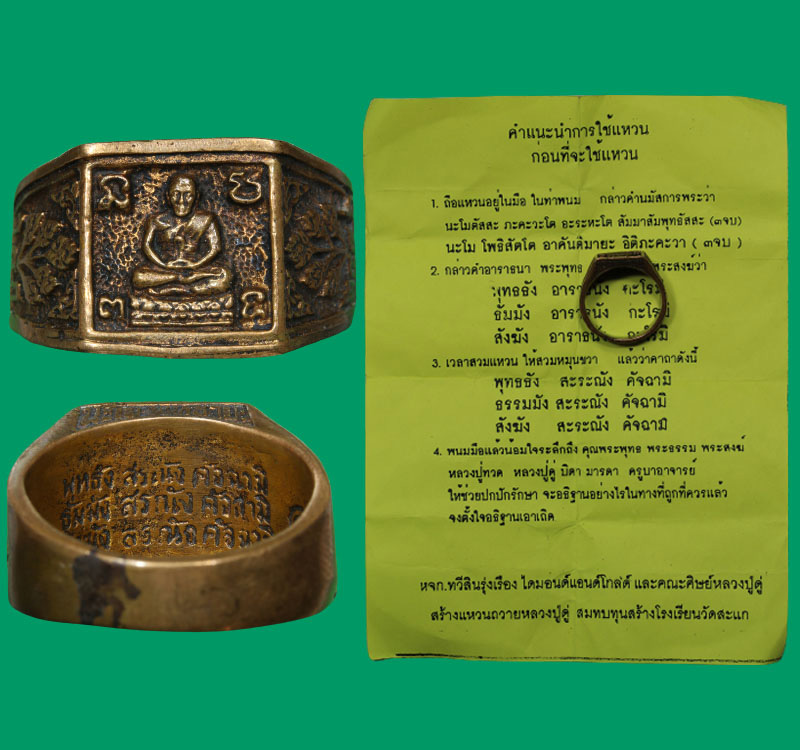 คำแนะนำการใช้แหวน
ก่อนที่จะใช้แหวน
1. ถือแหวนอยู่ในมือ ในท่าพนม กล่าวคำนมัสการพระว่า
นะโมตัสสะ ภะคะวะโต อะระหะโต สัมมาสัมพุทธัสสะ (๓จบ)
นะโม โพธิสัตโต อาคันติมายะ อิติภะคะวา ( ๓จบ )
2. กล่าวคำอาราธนา พระพุทธ พระสงฆ์ว่า
พุทธัง อาราธนัง กะโรมิ
ธัมมัง อาราธนัง กะโรมิ
สังฆัง อาราธนัง กะโรมิ
3. เวลาสวมแหวน ให้สวมหมุนขวา แล้วว่าคาถาดังนี้
พุทธธัง สะระณัง คัจฉามิ
ธรรมมัง สะระณัง คัจฉามิ
สังฆัง สะระณัง คัจฉามิ
4. พนมมือแล้วน้อมใจระลึกถึง คุณพระพุทธ พระธรรม พระสงฆ์
หลวงปู่ทวด หลวงปู่ดู่ บิดา มารดา ครูบาอาจารย์
ให้ช่วยปกปักรักษา จะอธิฐานอย่างไรในทางที่ถูกที่ควรแล้ว
จงตั้งใจอธิฐานเอาเถิด
หจก.ทวีสินรุ่งเรือง ไดมอนด์แอนด์โกลด์ และคณะศิษย์หลวงปู่ดู่
สร้างแหวนถวายหลวงปู่ดู่ สมทบทุนสร้างโรงเรียนวัดสะแก
พุทธัง สรณัง คัจฉามิ
ธัมมัง สรณัง คัจฉามิ
สรณัง คัจฉามิ